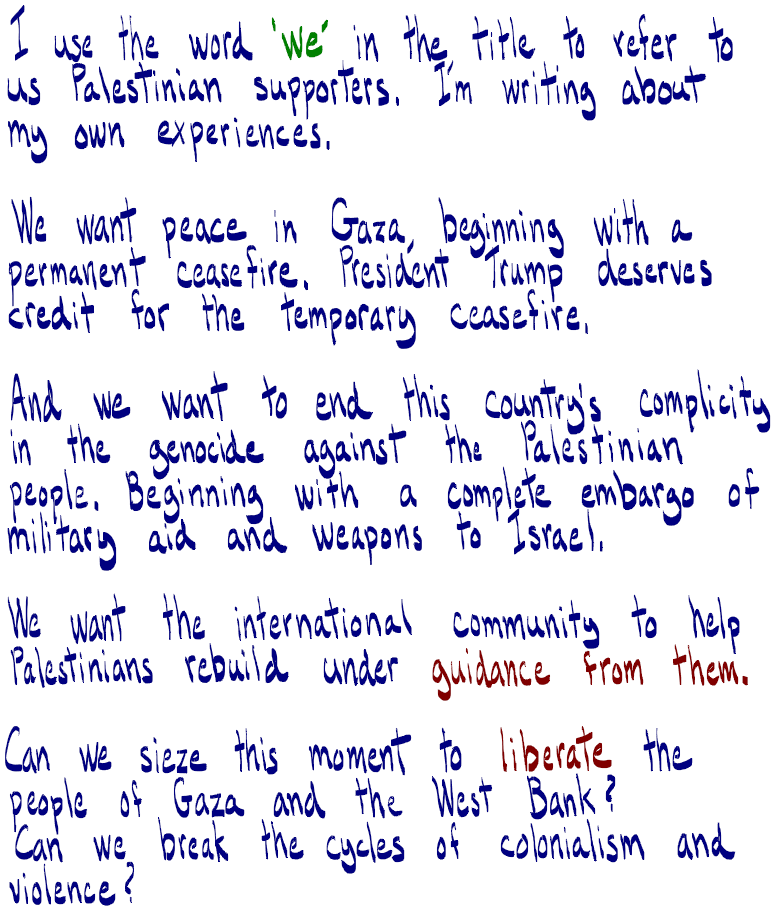 I use the word 'we' in the title to refer to
us Palestinian supporters. I'm writing about
my own experiences.
We want peace in Gaza, beginning with a
permanent ceasefire. President Trump deserves
credit for the temporary ceasefire.
And we want to end this country's complicity
in the genocide against the Palestinian
people. Beginning with a complete embargo of
military aid and weapons to Israel.
We want the international community to help
Palestinians rebuild under guidance from them.
Can we sieze this moment to liberate the
people of Gaza and the West Bank?
Can we break the cycles of colonialism and
violence?